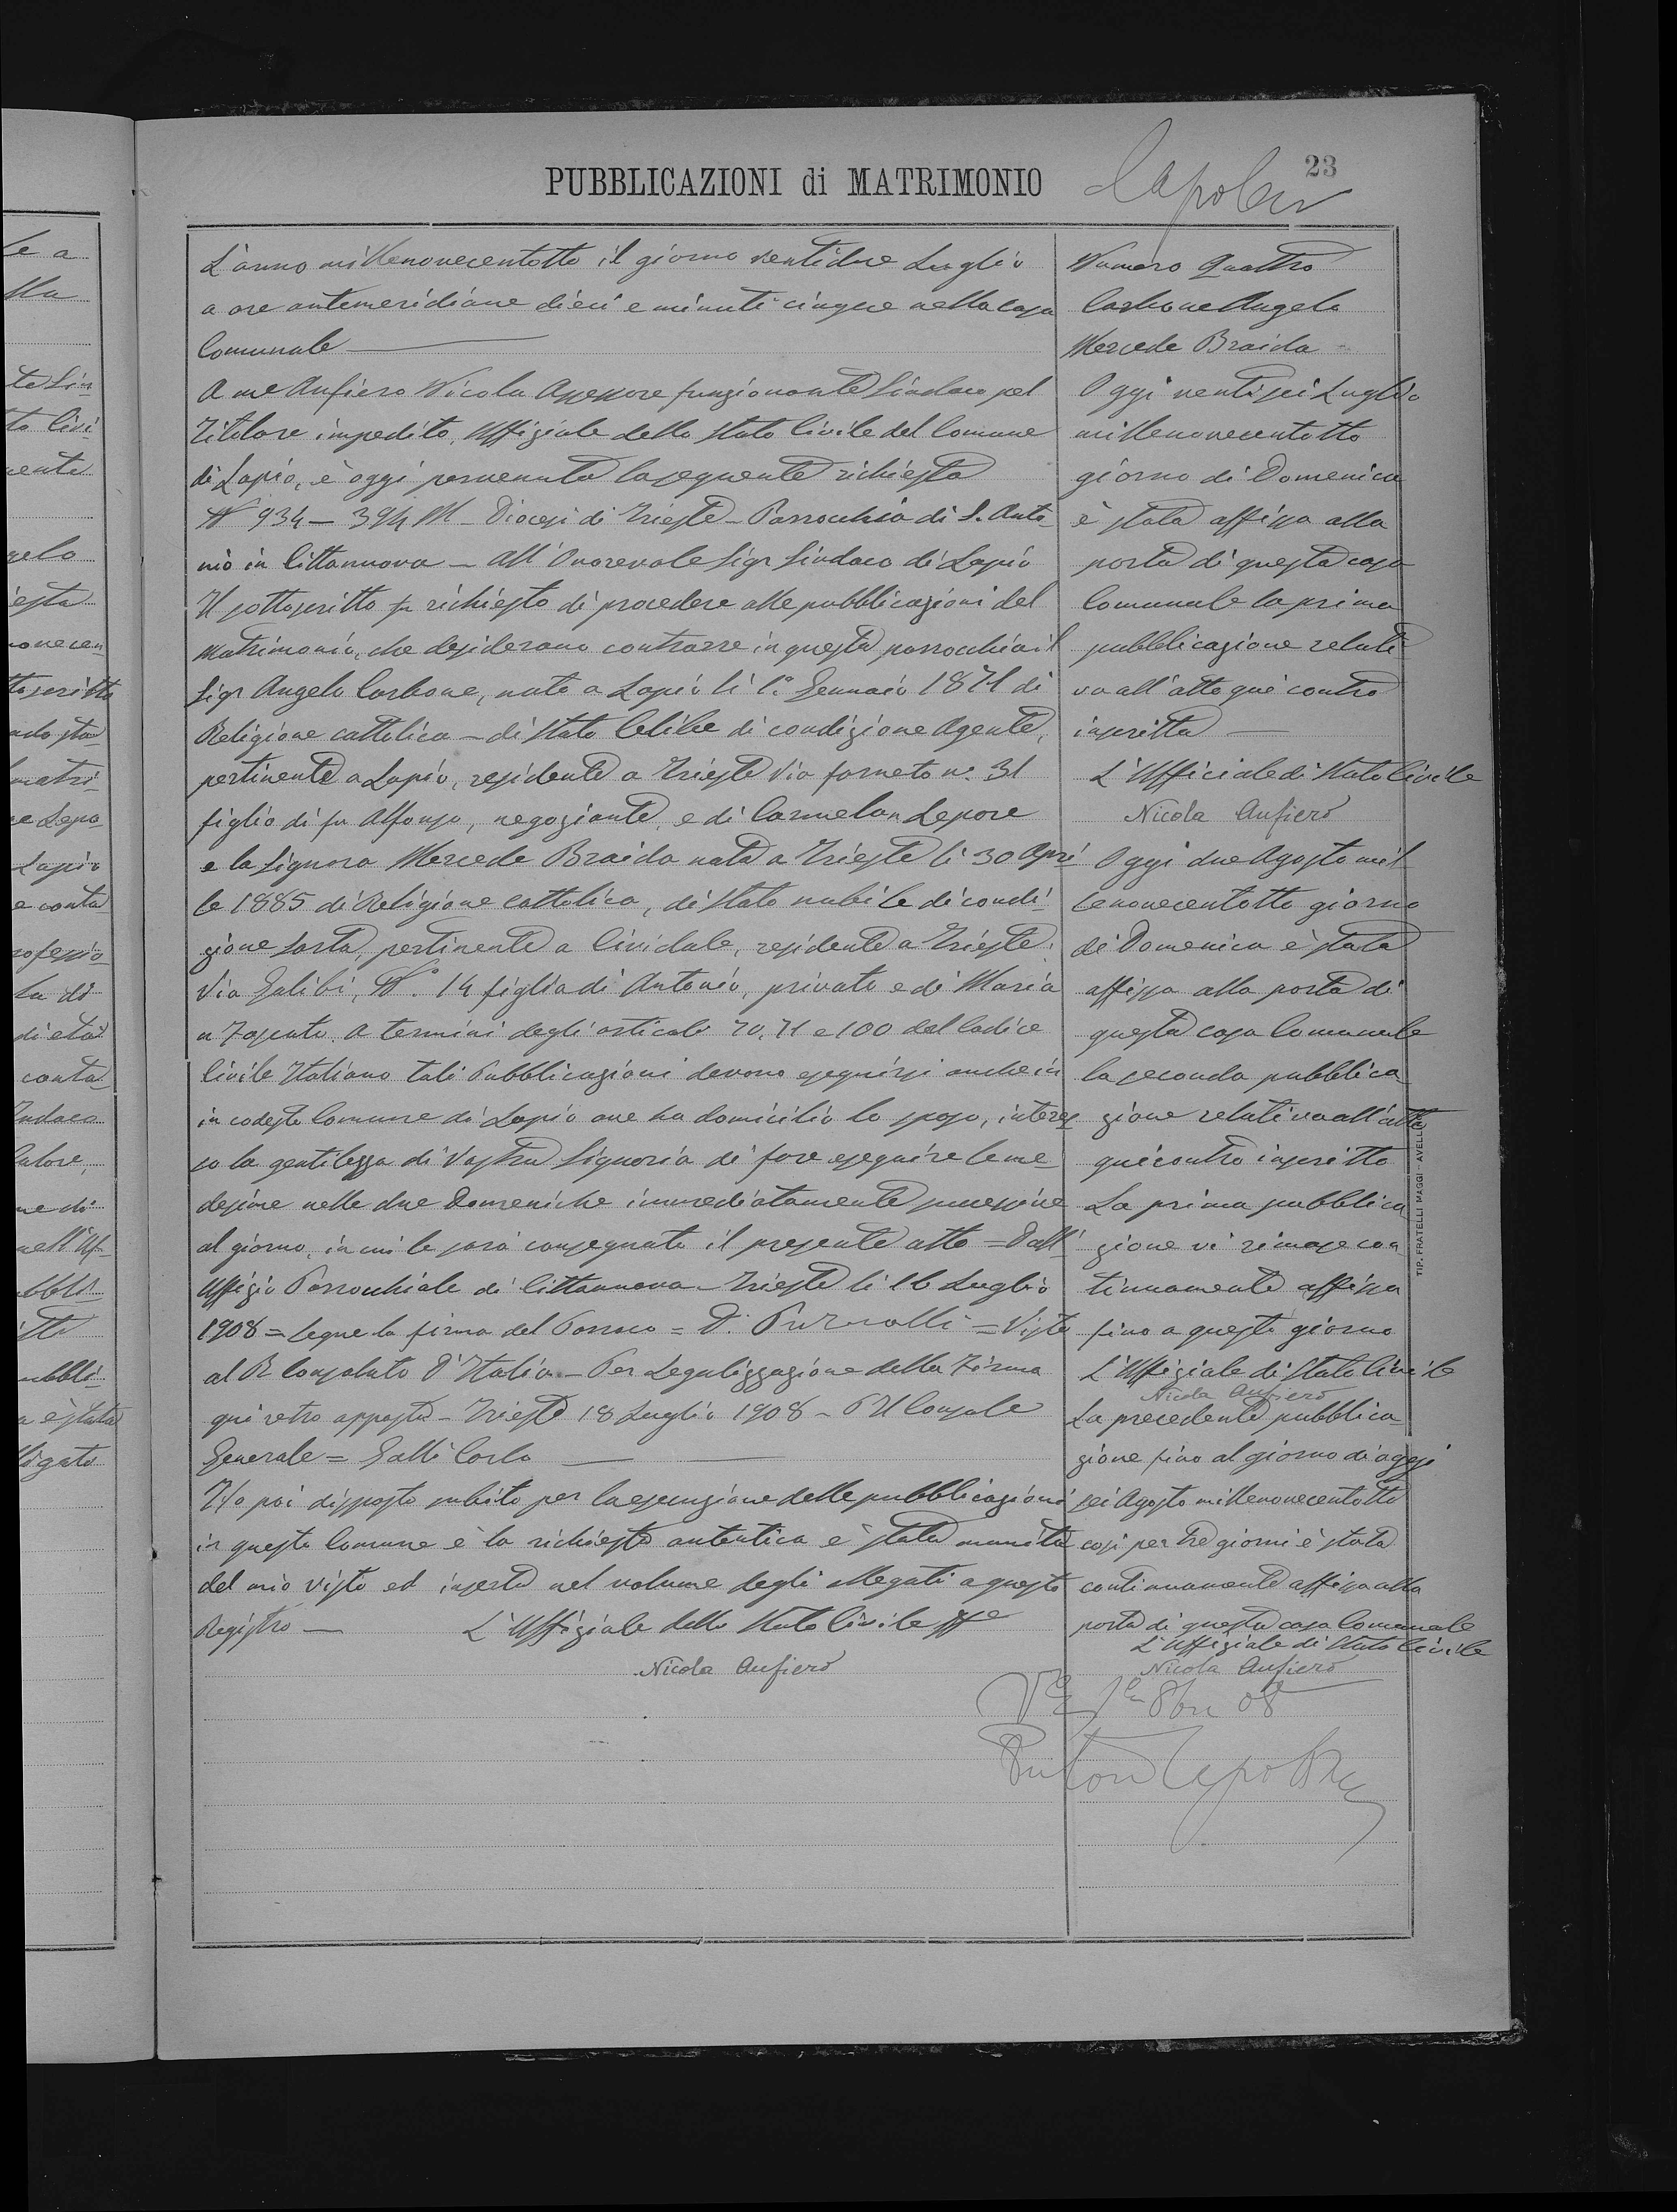 PUBBLICAZIONI di MATRIMONIO
23
L'anno millenovecentotto il giorno ventidue Luglio
a ore antimeridiane dieci e minuti cinque nella casa
Comunale
A me Aufiero Nicola Assessore funzionante Sindaco pel
Titolare impedito, Uffiziale dello Stato Civile del Comune
di Lapio, è oggi pervenuta la seguente richiesta
N 934 — 394 M — Diocesi di Trieste — Parrocchia di S. Anto
nio in Cittannova — All' Onorevole Sigr Sindaco di Lapio
Il sottoscritto fu richiesto di procedere alle pubblicazioni del
matrimonio, che desiderano contrarre in questa parrocchia il
Sigr Angelo Carbone, nato a Lapio li 1° Gennaio 1871 di
Religione cattolica — di stato Celibe di condizione Agente,
pertinente a Lapio, residente a Trieste Via Farneto n. 31
figlio di fu Alfonso, negoziante, e di Carmela n Lepore
e la Signora Mercede Braida nata a Trieste li 30 Apri
le 1885 di Religione cattolica, di stato nubile di condi-
zione Sarta, pertinente a Cividale, residente a Trieste.
Via N°. 14 figlia di Antonio, privato e di Maria
n a termini degli articoli 70, 71 e 100 del Codice
Civile Italiano tali Pubblicazioni devono eseguirsi anche in
in codesto Comune di Lapio ove ha domicilio lo sposo, interes
so la gentilezza di Vostra Signoria di fare eseguire le me
desime nelle due Domeniche immediatamente successive
al giorno, in cui le sarà consegnato il presente atto = Dall'
Uffizio Parrocchiale di Cittannova — Trieste li 16 Luglio
1908 = Segue la firma del Parroco = D. = Visto
al R Consolato d'Italia — Per Legalizzazione della Firma
qui retro apposta — Trieste 18 Luglio 1908 — Il Console
Generale = Galli Carlo
Ho poi disposto subito per la esecuzione delle pubblicazioni
in questo Comune e la richiesta autentica è stata munita
del mio visto ed inserta nel volume degli allegati a questo
Registro — L'Uffiziale dello Stato Civile ffe
Nicola Aufiero
Numero Quattro
Carbone Angelo
Mercede Braida
Oggi ventisei Luglio
millenovecentotto
giorno di Domenica
è stata affissa alla
porta di questa casa
Comunale la prima
pubblicazione relati
va all'atto qui contro
inscritto
L'Ufficiale di Stato Civile
Nicola Aufiero
Oggi due Agosto mil
lenovecentotto giorno
di Domenica è stata
affissa alla porta di
questa casa Comunale
la seconda pubblica
zione relativa all'atto
qui contro inscritto
La prima pubblica
zione vi rimase con
tinuamente affissa
fino a questo giorno
L'Uffiziale di Stato Civile
Nicola Aufiero
La precedente pubblica-
zione fino al giorno di oggi
sei Agosto millenovecentotto
così per tre giorni è stata
continuamente affissa alla
porta di questa casa Comunale
L'Uffiziale di Stato Civile
Nicola Aufiero
TIP. FRATELLI MAGGI - AVELLINO